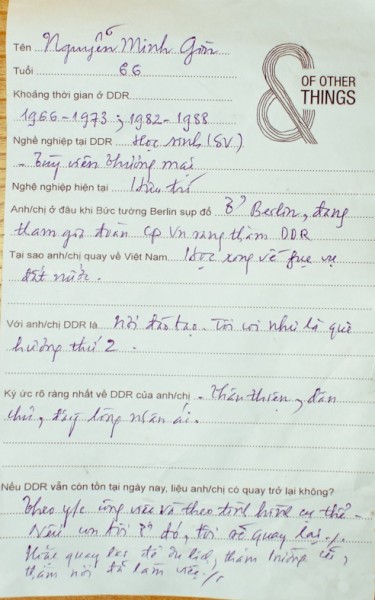 Tên Nguyễn Minh
&
OF OTHER
THINGS
Tuổi 66
Khoảng thời gian ở DDR
1966-1973 ; 1982-1988
Nghề nghiệp tại DDR Học sinh (SV)
- Tùy viên thương mại
Nghề nghiệp hiện tại Hưu trí
Anh/chị ở đâu khi Bức tường Berlin sụp đổ Ở Berlin, đang
tham gia đoàn CP VN sang thăm DDR
Tại sao anh/chị quay về Việt Nam Học xong về phục vụ
đất nước.
Với anh/chị DDR là nơi đào tạo. Tôi coi như là quê
hương thứ 2.
Ký ức rõ ràng nhất về DDR của anh/chị - Thân thiện, dân
chủ, đầy lòng nhân ái.
Nếu DDR vẫn còn tồn tại ngày nay, liệu anh/chị có quay trở lại không?
Theo y/c công việc và theo tình hình cụ thể.
Nếu con tôi ở đó, tôi sẽ quay lại./.
Hoặc quay lại để du lịch, thăm trường cũ,
thăm nơi đã làm việc./.